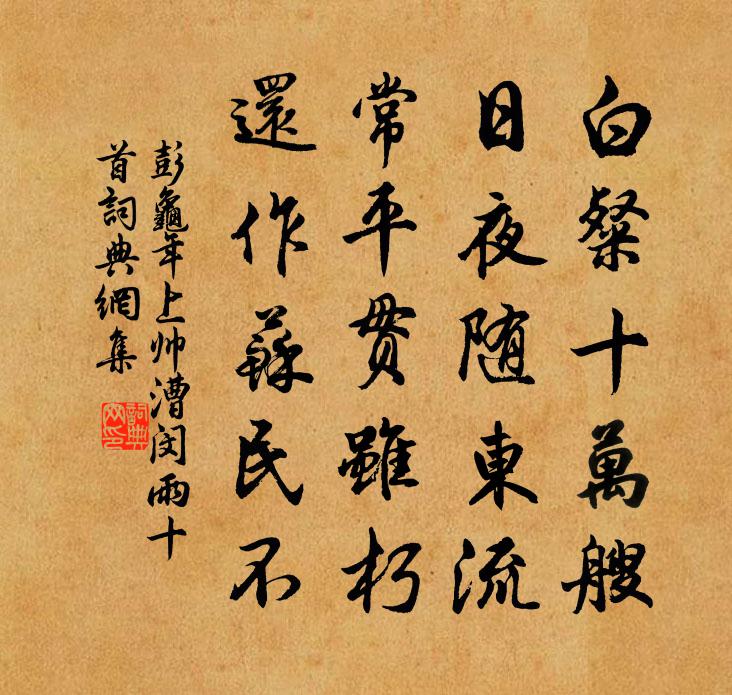 白粲十萬艘
日夜随東流
常平貫雖朽
還作蘇民不
彭龜年上帅漕闵雨十
首詞典網集
詞典網印